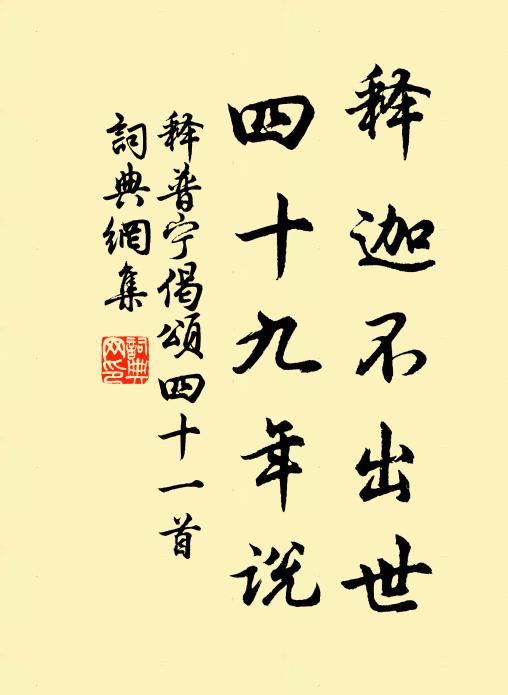 释迦不出世
四十九年说
释普宁偈颂四十一首
詞典網集
詞典网印